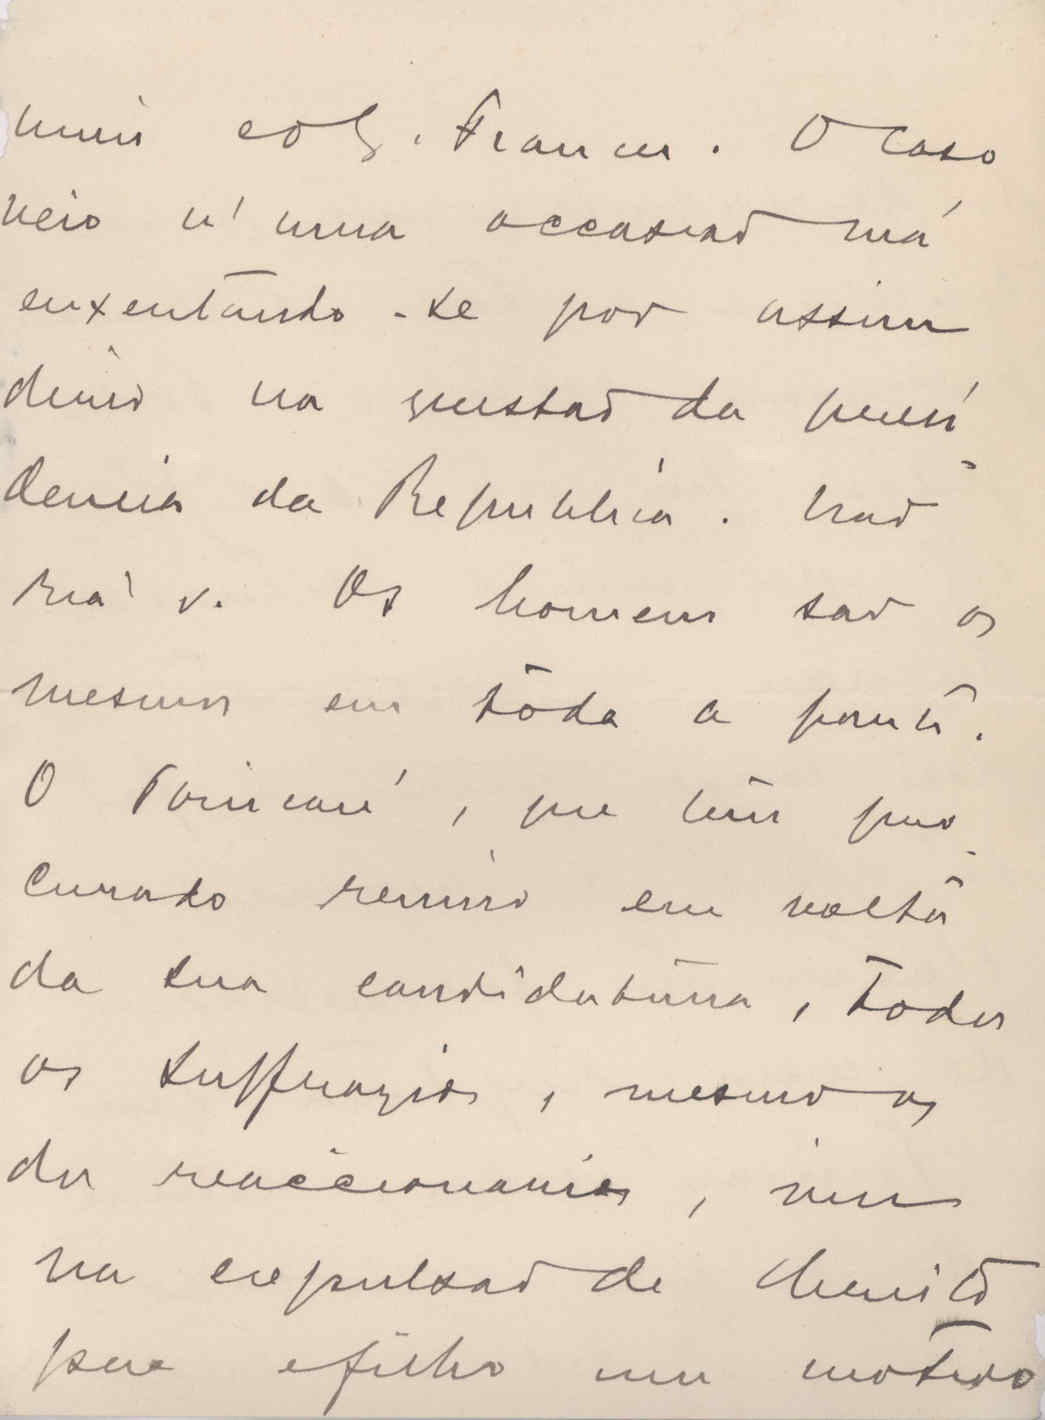 e o G. Francez. O caso
veio n'uma occasião má
enxentando-se por assim
dizer na questão da presi-
dencia da Republica. Não
ria v. Os homens são os
mesmos em toda a parte.
O Poincaré, que tem pro-
curado reunir em volta
da sua candidatura, todos
os suffragios, mesmo os
dos reaccionarios, viu
na expulsão de
que e filho um motivo